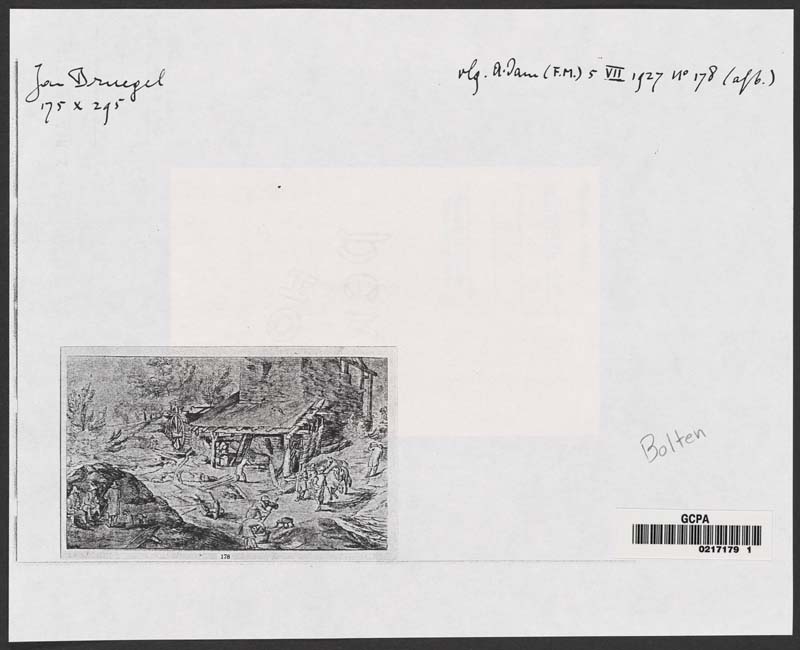 Jan Bruegel
175 x 295
vlg. A'dam (F.M.) 5 VII 1927 No 178 (afb.)
178
Bolten
GCPA
0217179 1